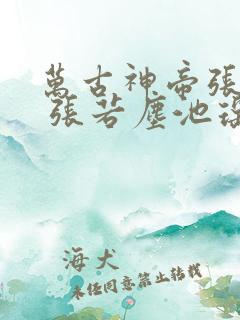 萬古神帝張
張若塵池
海犬
未經同意禁止轉載